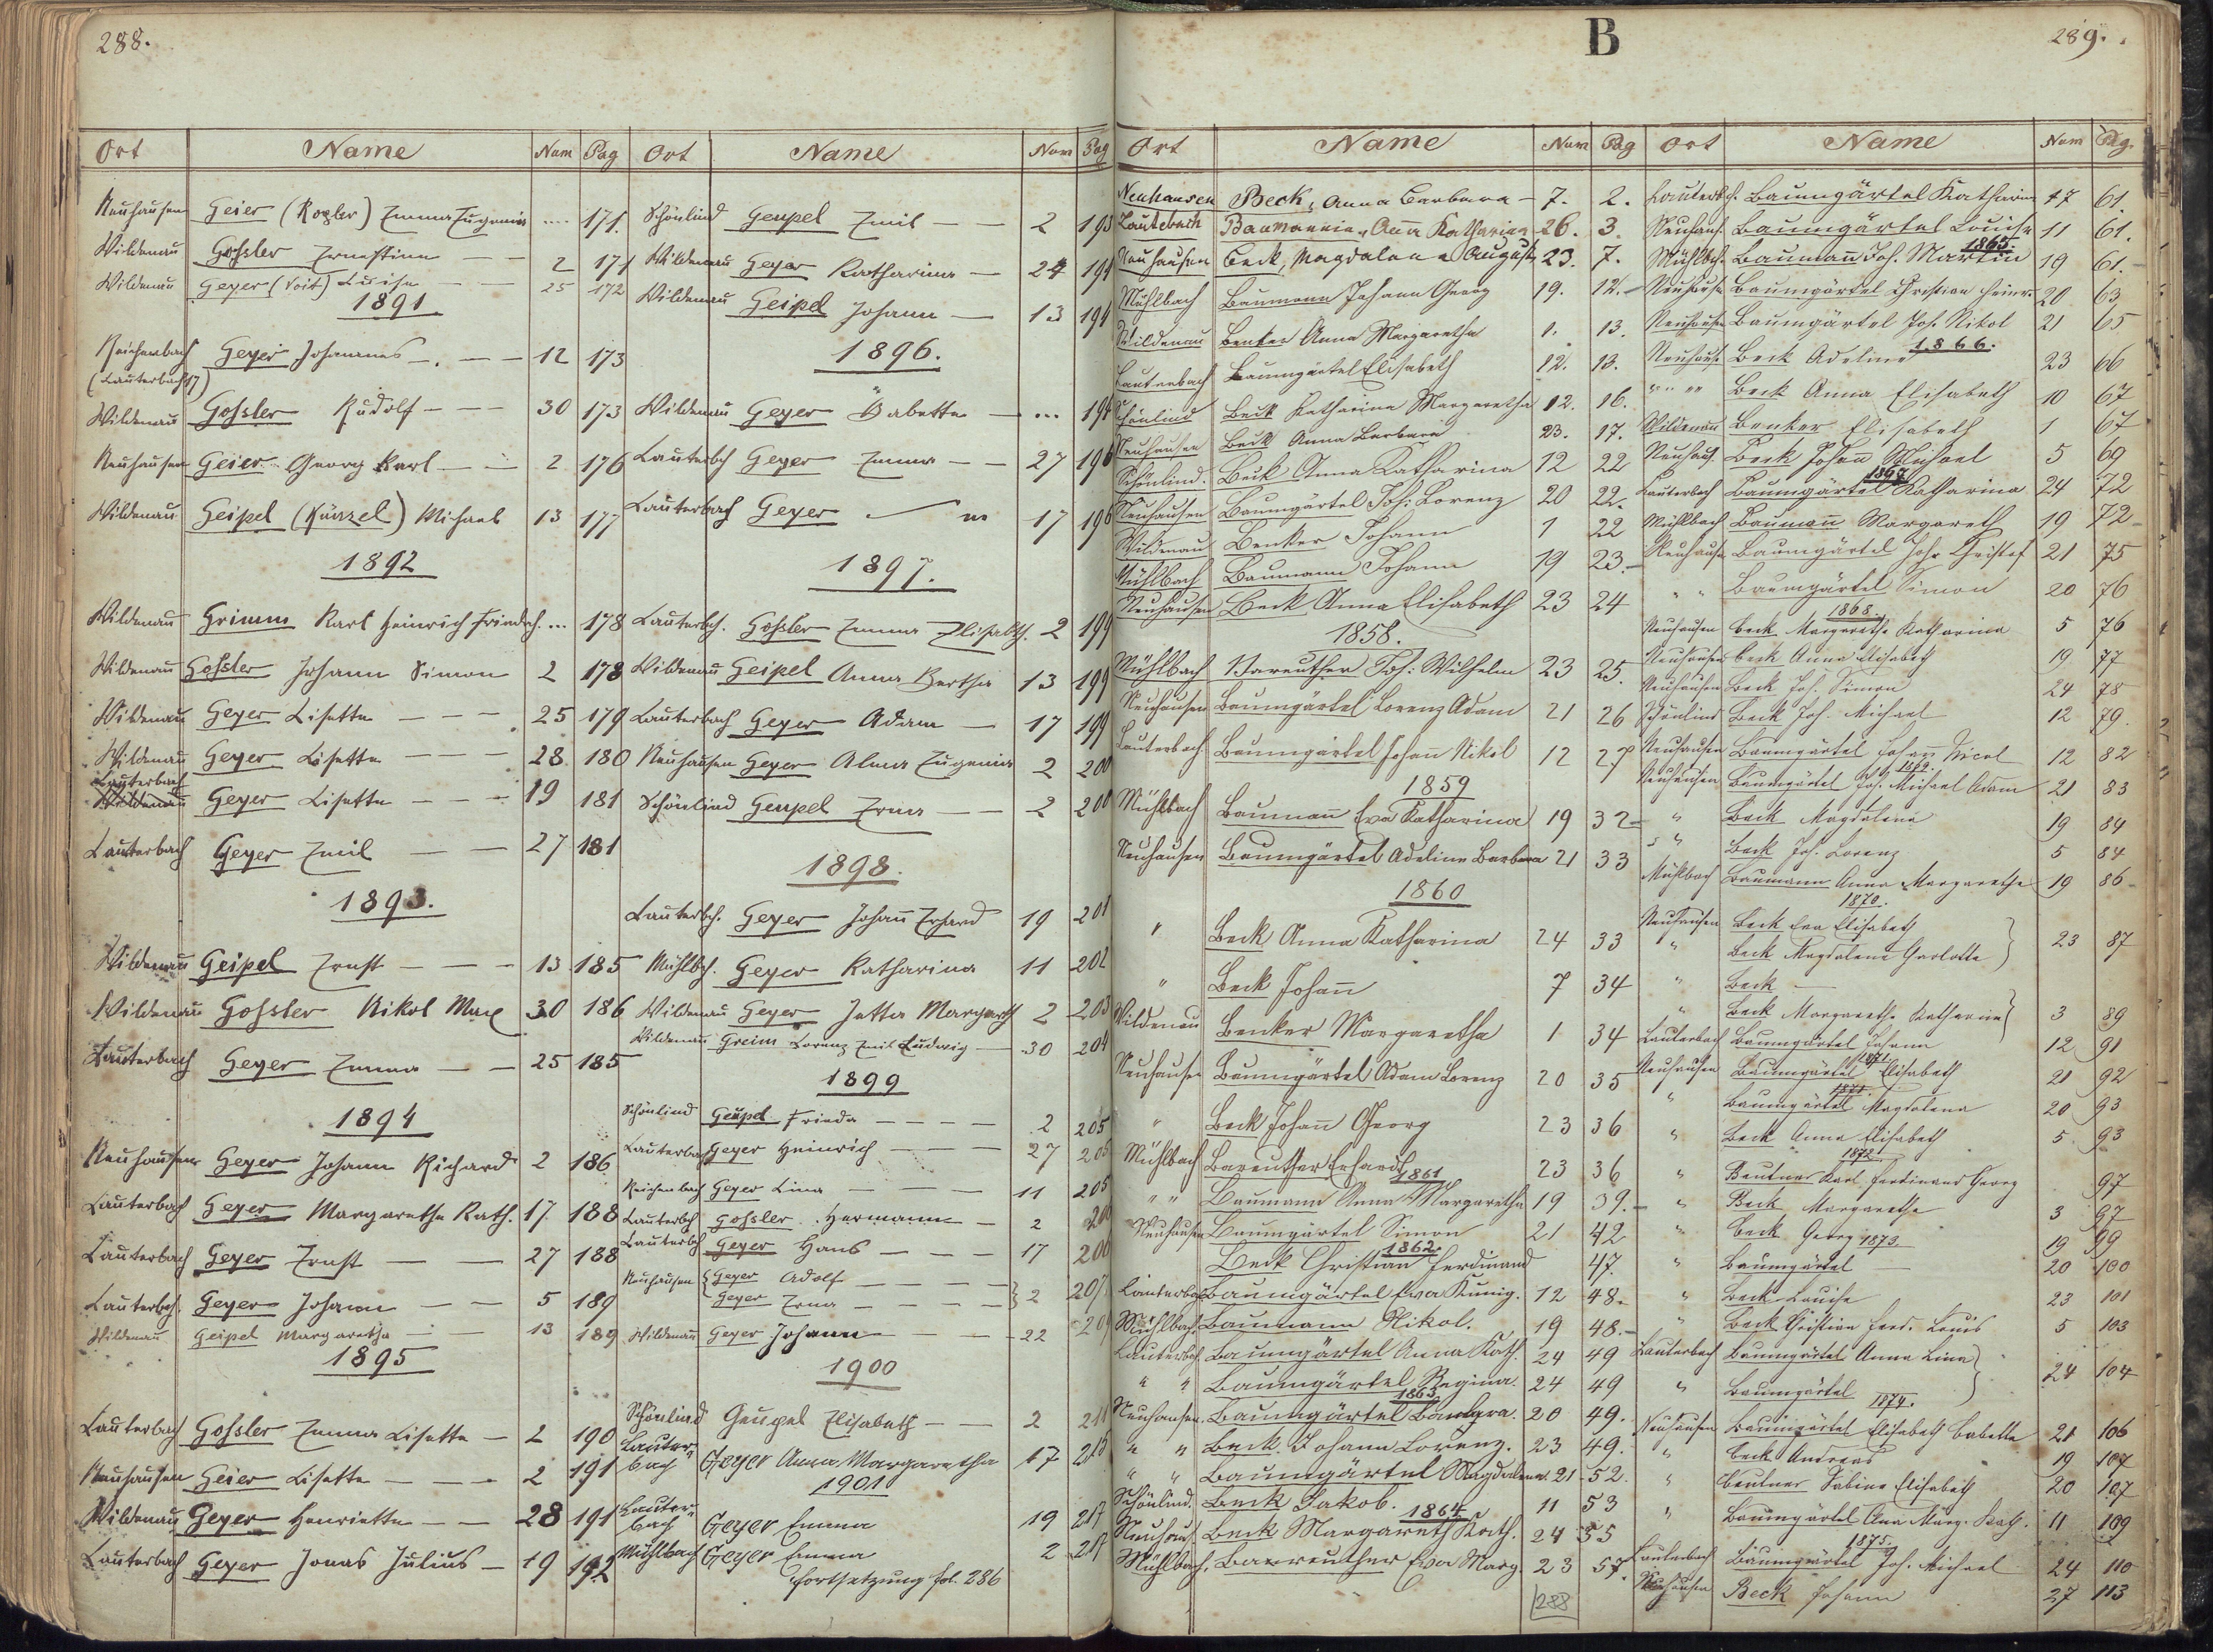 288.
Ort Name Num Pag
Neuhausen Geier (Rogler) Emma Eugenie .... 171.
Wildenau Goßler Ernestine — — 2 171
Wildenau Geyer (Voit) Luise — — 25 172
1891
Reichenbach Geyer Johannes — . — — 12 173
(Lauterbach 17)
Wildenau Goßler Rudolf — — — 30 173
Neuhausen Geier Georg Karl — — 2 176
Wildenau Geipel (Künzel) Michael 13 177
1892
Wildenau Grimm Karl Heinrich Friedrch. ... 178
Wildenau Goßler Johann Simon 2 178
Wildenau Geyer Lisette — — — 25 179
Wildenau Geyer Lisette — — — 28. 180
Lauterbach
Wildenau Geyer Lisette — — — 19 181
Lauterbach Geyer Emil — — 27 181
1893.
Wildenau Geipel Ernst — — — 13 185
Wildenau Goßler Nikol Max 30 186
Lauterbach Geyer Emma — — 25 185
1894
Neuhausen Geyer Johann Richard 2 186
Lauterbach Geyer Margaretha Kath. 17. 188
Lauterbach Geyer Ernst — — 27 188
Lauterbch. Geyer Johann — — 5 189
Wildenau Geipel Margaretha — 13 189
1895
Lauterbach Goßler Emma Lisette — 2 190
Neuhausen Geier Lisette — — — 2 191
Wildenau Geyer Henriette — — 28 191
Lauterbach Geyer Jonas Julius — 19 192
Ort Name Num Pag
Schönlind Geupel Emil — — 2 193
Wildenau Geyer Katharina — 24 194
Wildenau Geipel Johann — 13 194
1896.
Wildenau Geyer Babette — ... 194
Lauterbch Geyer Emma — — 27 196
Lauterbach Geyer 17 196
1897.
Lauterbch. Goßler Emma Elisabth. 2 199
Wildenau Geipel Anna Bertha 13 199
Lauterbach Geyer Adam — 17 199
Neuhausen Geyer Alma Eugenie 2 200
Schönlind Geupel Erna — — 2 200
1898.
Lauterbch. Geyer Johañ Erhard 19 201
Mühlbch. Geyer Katharina 11 202
Wildenau Geyer Jetta Margareth 2 203
Wildenau Greim Lorenz Emil Ludwig — 30 204
1899
Schönlind Geupel Frieda — — — — 2 205
Lauterbach Geyer Heinrich — — — 27 205
Reichenbach Geyer Lina — — — 11 205
Lauterbch Goßler Hermann — 2 206
Lauterbch Geyer Hans — — — 17 206
Neuhausen { Geyer Adolf — — — —
Geyer Erna — — — — } 2 207
Wildenau Geyer Johann — — 22
1900
Schönlind Geupel Elisabeth — — 2 211
Lauter-
bach Geyer Anna Margaretha 17 215
1901
Lauter-
bach Geyer Emma 19 217
Mühlbach Geyer Emma 2 217
Fortsetzung fol. 286
B
289.
Ort Name Num Pag
Neuhausen Beck, Anna Barbara — 7. 2.
Lauterbach Baumannin, Anna Katharina 26. 3.
Neuhausen Beck, Magdalena Auguste 23. 7.
Mühlbach Baumann Johann Georg 19. 12.
Wildenau Benker Anna Margaretha 1. 13.
Lauterbach Baumgärtel Elisabeth 12. 13.
Schönlind Beck Katharina Margaretha 12. 16.
Neuhausen Beck Anna Barbara 23. 17.
Schönlind. Beck Anna Katharina 12 22
Neuhausen Baumgärtel Joh: Lorenz 20 22.
Wildenau Benker Johann 1 22
Mühlbach Baumann Johann 19 23.
Neuhausen Beck Anna Elisabeth 23 24
1858.
Mühlbach Bareuther Joh: Wilhelm 23 25.
Neuhausen Baumgärtel Lorenz Adam 21 26
Lauterbach Baumgärtel Johañ Nikol 12 27
1859
Mühlbach Baumañ Eva Katharina 19 32
Neuhausen Baumgärtel Adeline Barbara 21 33
1860
" Beck Anna Katharina 24 33
" Beck Johañ 7 34
Wildenau Benker Margaretha 1 34
Neuhausen Baumgärtel Adam Lorenz 20 35
" Beck Johañ Georg 23 36
Mühlbach Bareuther Erhard 23 36
1861
" " Baumann Anna Margaretha 19 39.
Neuhausen Baumgärtel Simon 21 42
1862
Beck Christian Ferdinand 47.
Lauterbach Baumgärtel Eva Kunig. 12 48.
Mühlbach. Baumann Nikol. 19 48.
Lauterbch. Baumgärtel Anna Kath. 24 49
" " Baumgärtel Regina. 24 49
1863
Neuhausen. Baumgärtel 20 49.
" " Beck Johann Lorenz. 23 49.
" " Baumgärtel Magdalena. 21 52.
Schönlind. Beck Jakob. 11 53
1864
Neuhaus. Beck Margareth Kath. 24 55
Mühlbach. Baureuther Eva Marg. 23 57.
288
Ort Name Num Pag.
Lauterbch. Baumgärtel Katharina 17 61.
Neuhaus. Baumgärtel Louise 11 61.
1865.
Mühlbch. Baumañ Joh. Martin 19 61.
Neuhause Baumgärtel Christian Heinr. 20 63
Neuhause Baumgärtel Joh. Nikol 21 65
1866.
Neuhaus. Beck Adeline 23 66
" " " " Beck Anna Elisabeth 10 67
Wildenau Benker Elisabeth 1 67
Neuhaus. Beck Johañ Michael 5 69
1867
Lauterbach Baumgärtel Katharina 24 72
Mühlbach Baumañ Margareth 19 72
Neuhause Baumgärtel Joh. Christof 21 75
" " Baumgärtel Simon 20 76
1868.
Neuhausen Beck Margaretha Katharina 5 76
Neuhausen Beck Anna Elisabeth 19 77
Neuhausen Beck Joh. Simon 24 78
Schönlind Beck Joh. Michael 12 79.
Neuhausen Baumgärtel Johann Nicol 12 82
1869.
Neuhausen Baumgärtel Joh. Michael Adam 21 83
" Beck Magdalena 19 84
" Beck Joh. Lorenz 5 84
Mühlbach Baumann Anna Margaretha 19 86
1870.
Neuhausen Beck Eva Elisabeth
" Beck Magdalena Carlotte } 23 87
" Beck —
" Beck Margaretha Katharina } 3 89
Lauterbach Baumgärtel Johann 12 91
1871
Neuhausen Baumgärtel Elisabeth 21 92
1871
" Baumgärtel Magdalena 20 93
" Beck Anna Elisabeth 5 93
1872
" Beutner Karl Ferdinand Georg 97
" Beck Margaretha 3 97
" Beck Georg 1873. 19 99
" Baumgärtel — 20 100
" Beck Louise 23 101
" Beck Christian Ferd. Louis 5 103
Lauterbach Baumgärtel Anna Lina
" Baumgärtel } 24 104
1874.
Neuhausen Baumgärtel Elisabeth Babetta 21 106
" Beck Andreas 19 107
" Beutner Sabine Elisabeth 20 107
" Baumgärtel Ana Marg. Kath. 11 109
1875.
Lauterbach Baumgärtel Joh. Michael 24 110
Neuhausen Beck Johann 27 113